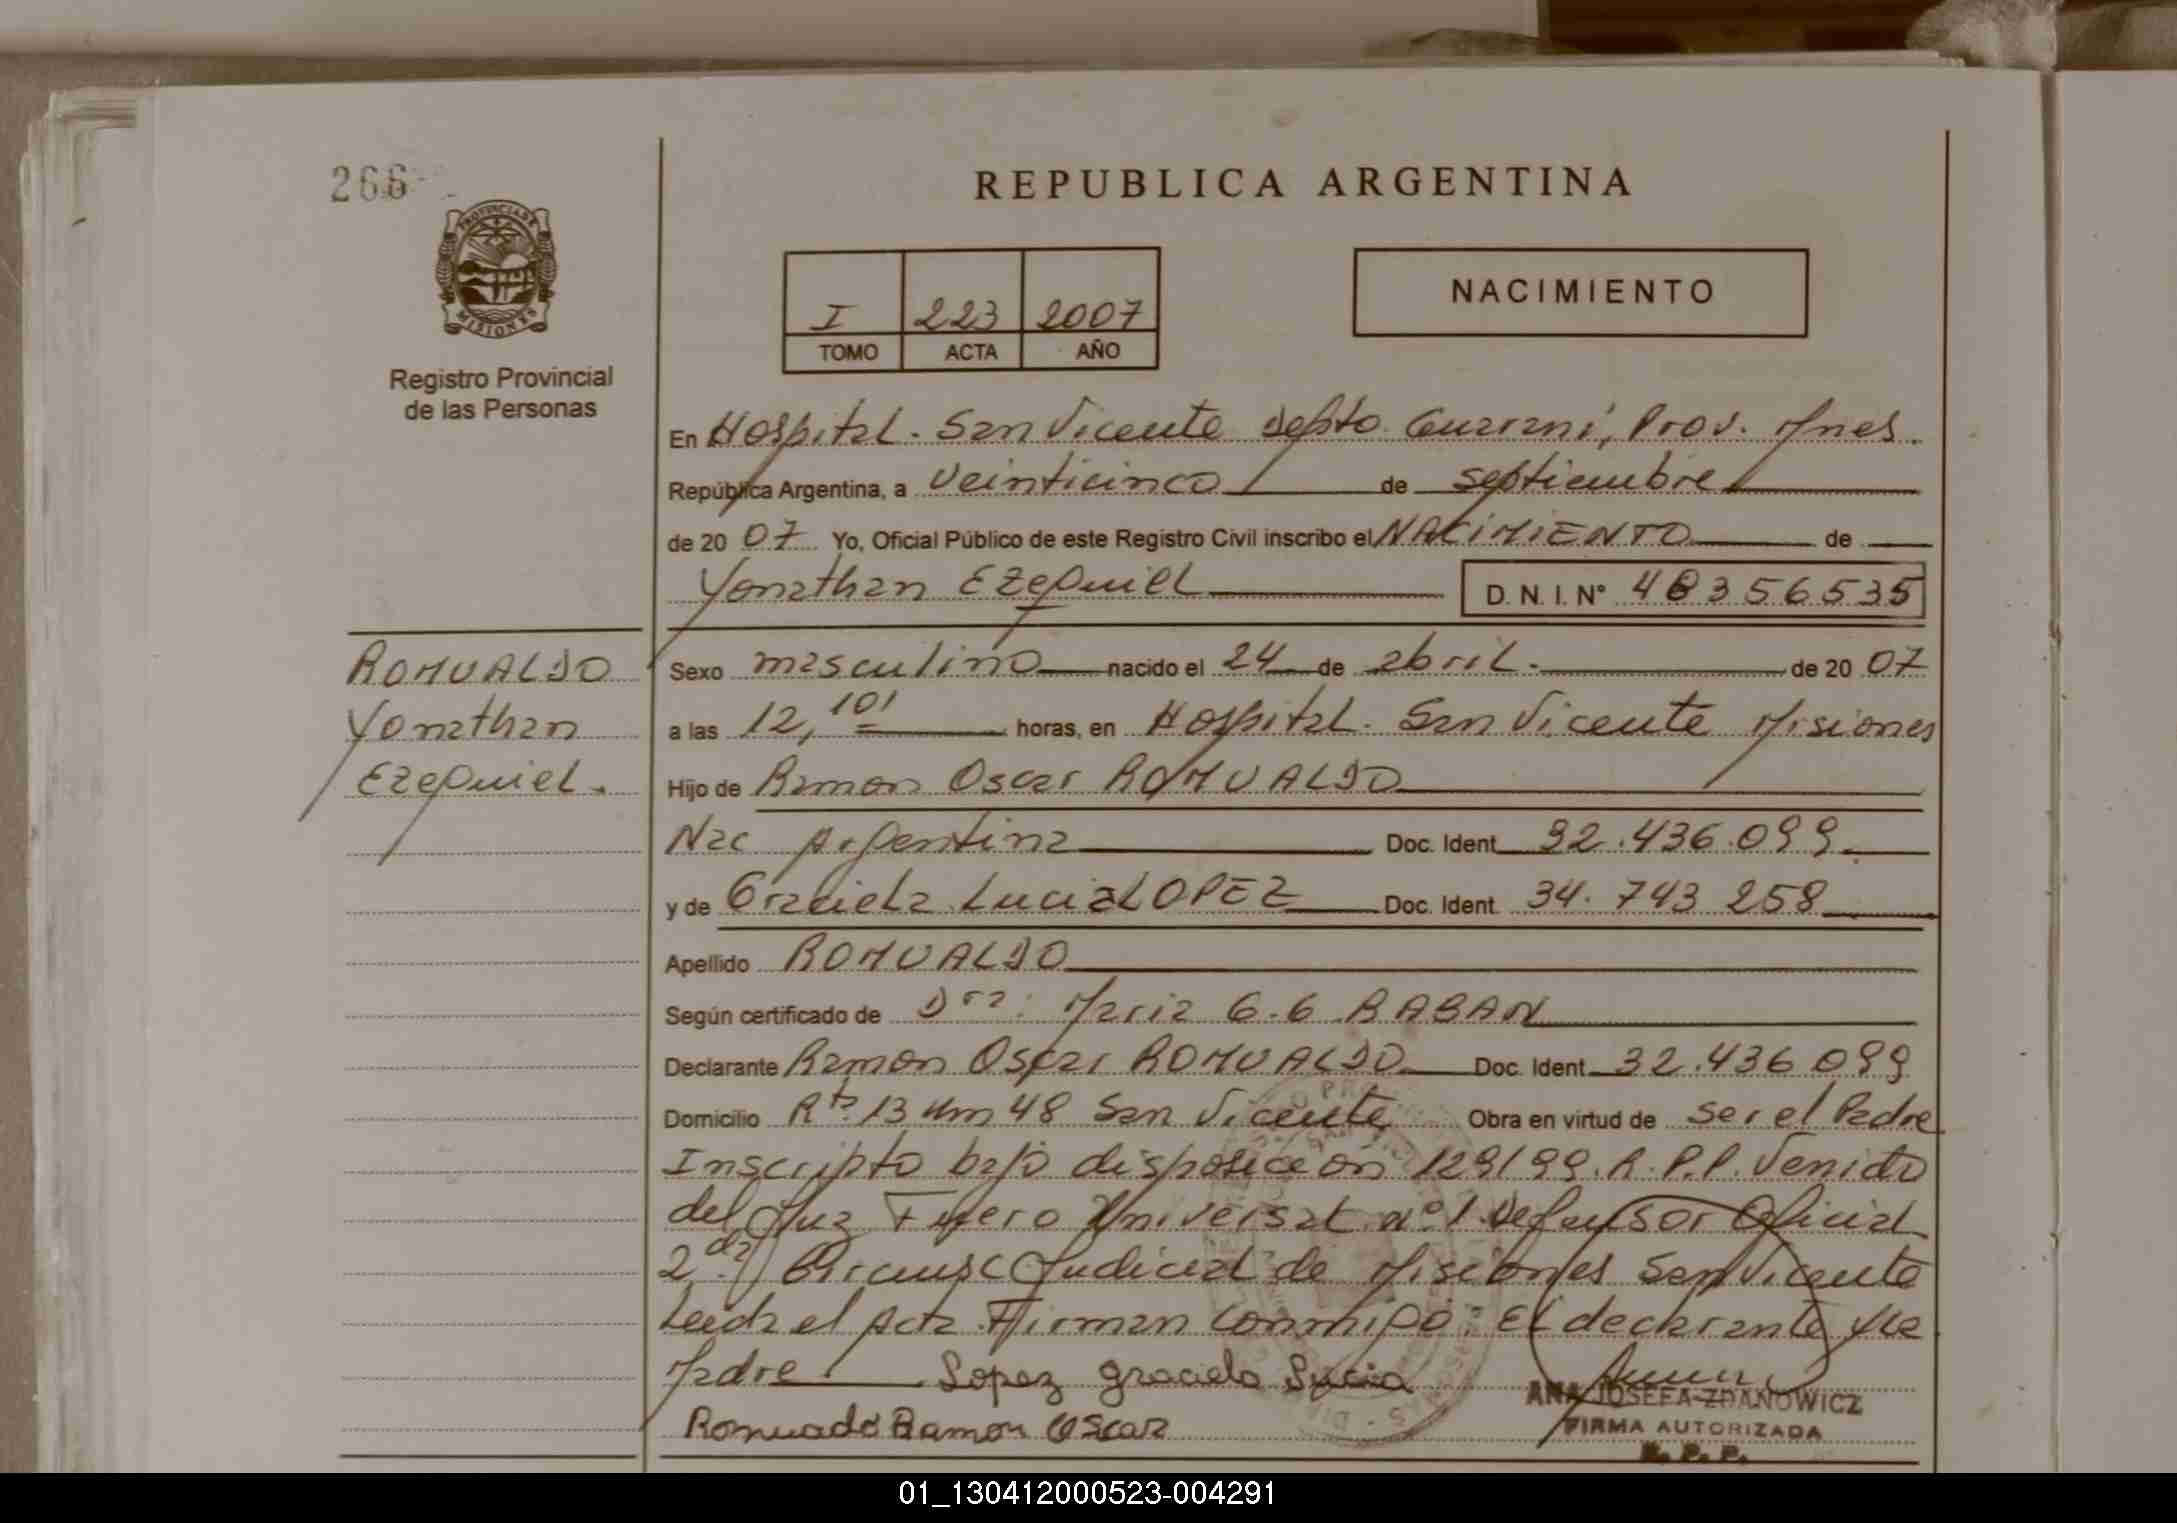 266
PROVINCIA DE
MISIONES
Registro Provincial
de las Personas
REPUBLICA ARGENTINA
I 223 2007
TOMO ACTA AÑO
NACIMIENTO
En Hospital. San Vicente Depto. Guarani, Prov. Mnes.
República Argentina, a veinticinco de septiembre
de 20 07 Yo, Oficial Público de este Registro Civil inscribo el NACIMIENTO de
Yonathan Ezequiel D. N. I. N° 48356535
ROMUALDO
Yonathan
Ezequiel.
Sexo masculino nacido el 24 de abril. de 20 07
a las 12,10' horas, en Hospital. San Vicente Misiones
Hijo de Ramon Oscar ROMUALDO
Nac Argentina Doc. Ident 32.436.099.
y de Graciela Lucia LOPEZ Doc. Ident. 34. 743 258
Apellido ROMUALDO
Según certificado de Dra: Maria G.G RABAN
Declarante Ramon Oscar ROMUALDO Doc. Ident 32.436 099
Domicilio Rta 13 Km 48 San Vicente Obra en virtud de ser el Padre
Inscripto bajo disposicion 129/99. R.P.P. Venido
del Juz Fuero Universal n° 1 Defensor Oficial
2da Circunsc Judicial de Misiones San Vicente
Leida el Acta Firman conmigo: El declarante y la
Madre Lopez Graciela Lucia
Romuado Ramon Oscar
ANA JOSEFA ZDANOWICZ
FIRMA AUTORIZADA
R. P. P.
01_130412000523-004291